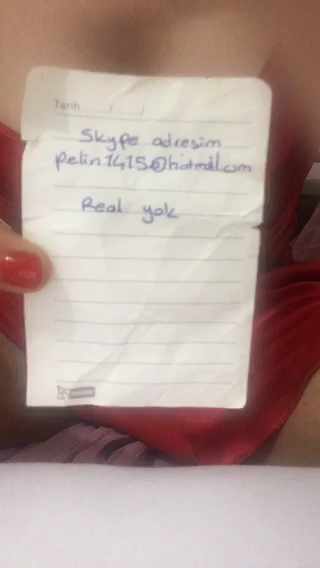 Tarih / /
Skype adresim
Pelin1415@hotmail.com
Real yok